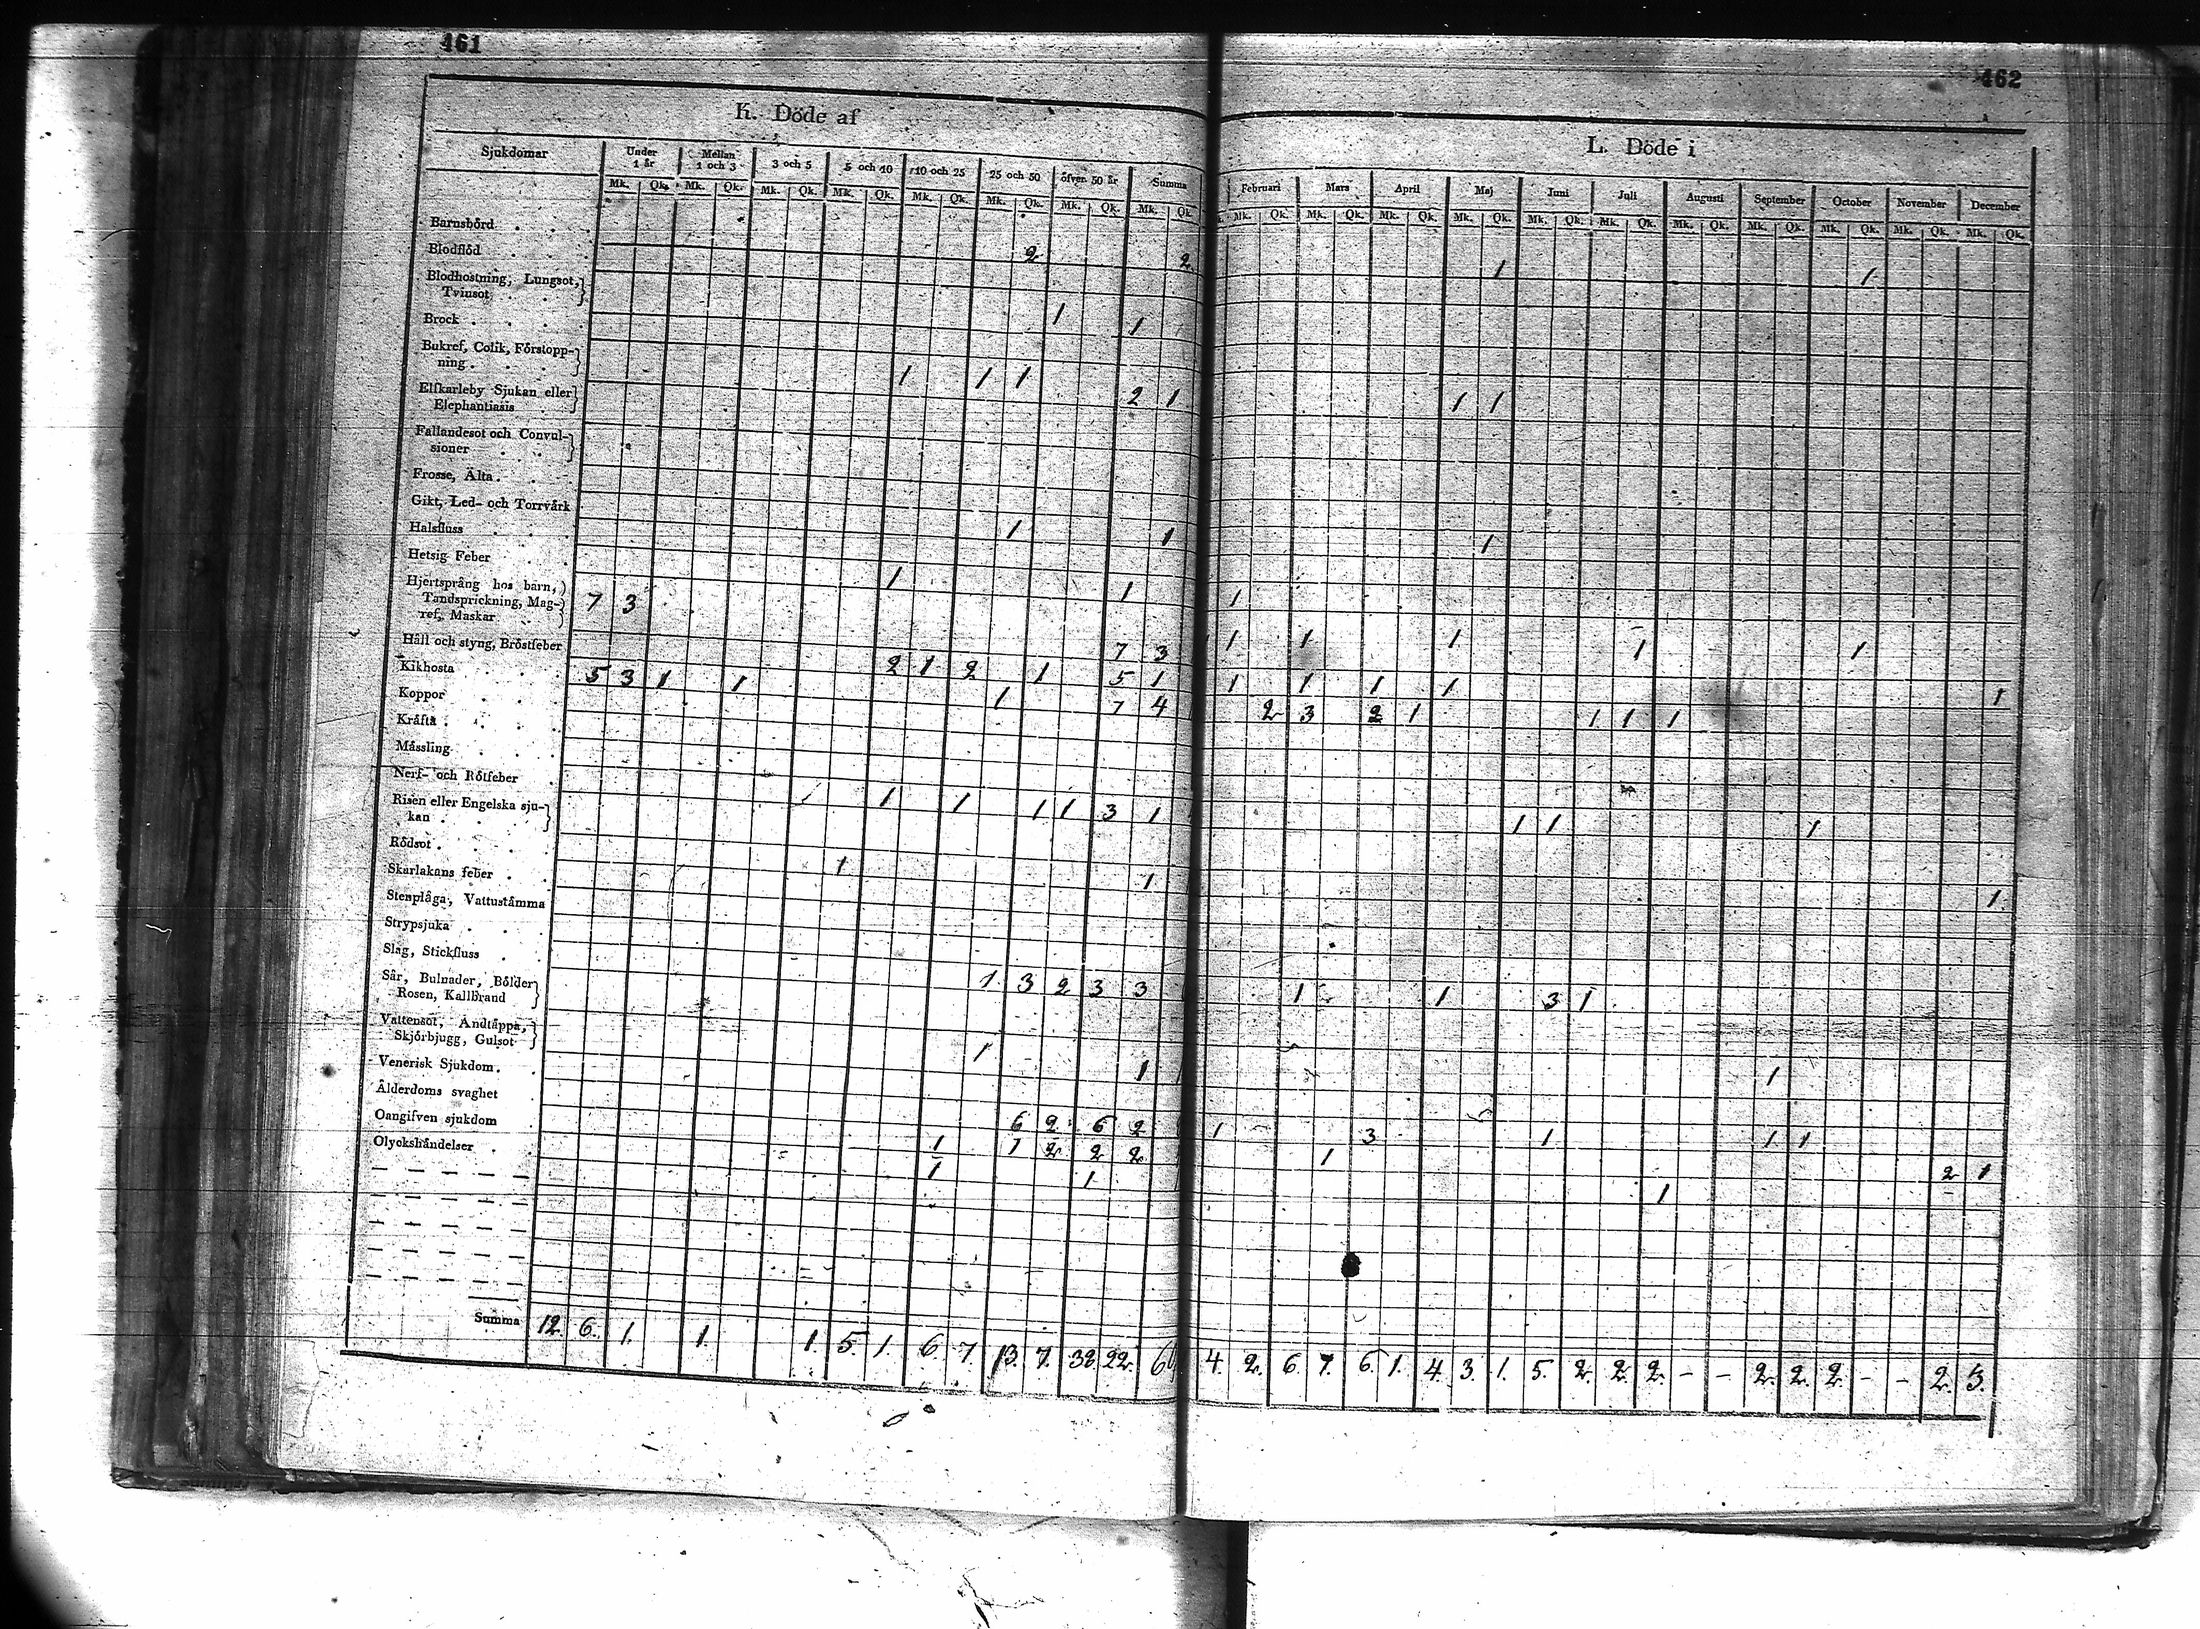 461
462
K. Döde af
L. Döde i
Sjukdomar
Under 1 år
Mellan 1 och 3
3 och 5
5 och 10
10 och 25
25 och 50
öfver 50 år
Summa
Mk. Qk. Mk. Qk. Mk. Qk. Mk. Qk. Mk. Qk. Mk. Qk. Mk. Qk. Mk. Qk.
Februari Mars April Maj Juni Juli Augusti September October November December
Mk. Qk. Mk. Qk. Mk. Qk. Mk. Qk. Mk. Qk. Mk. Qk. Mk. Qk. Mk. Qk. Mk. Qk. Mk. Qk. Mk. Qk.
Barnsbörd
Blodflöd 2 2 1 1
Blodhostning, Lungsot,
Tvinsot 1 1
Brock
Bukref, Colik, Förstopp-
ning 1 1 1 2 1 1 1
Elfkarleby Sjukan eller
Elephantiasis
Fallandesot och Convul-
sioner
Frosse, Älta
Gikt, Led- och Torrvärk
Halsfluss 1 1 1
Hetsig Feber 1 1 1
Hjertsprång hos barn,
Tandsprickning, Mag-
ref, Maskar 7 3 7 3 1 1 1 1 1
Håll och styng, Bröstfeber 2 1 2 1 5 1 1 1 1 1 1
Kikhosta 5 3 1 1 1 7 4 2 3 2 1 1 1 1
Koppor
Kräfta
Mässling
Nerf- och Rötfeber 1 1 1 1 3 1 1 1 1
Risen eller Engelska sju-
kan
Rödsot 1 1 1
Skarlakans feber
Stenplåga, Vattustämma
Strypsjuka
Slag, Stickfluss 1 3 2 3 3 1 1 3 1
Sår, Bulnader, Bölder
Rosen, Kallbrand
Vattensot, Andtäppa,
Skjörbjugg, Gulsot 1 1 1
Venerisk Sjukdom
Ålderdoms svaghet 6 2 6 2 1 3 1 1 1 2 1
Oangifven sjukdom 1 1 2 2 2 1
Olyckshändelser 1 1 1
Summa 12. 6. 1. 1. 1. 5. 1. 6. 7. 13. 7. 38. 22. 4. 2. 6. 7. 6. 1. 4. 3. 1. 5. 2. 2. 2. - - 2. 2. 2. - - 2. 3.